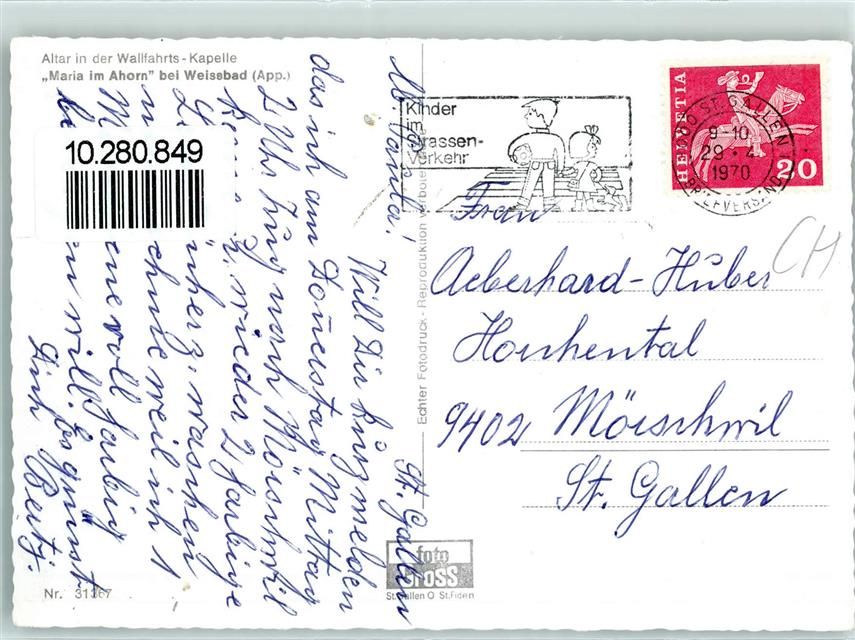 Altar in der Wallfahrts-Kapelle
„Maria im Ahorn" bei Weissbad (App.)
10.280.849
St. Gallen
M. Tanta!
Will Dir kurz melden
das ich am Donerstag Mittag
2 Uhr Zug nach Mörschwil
wieder 2 farbige
waschen
weil ich 1
voll farbig
will. Es grüsst
Dich Beitj.
Nr. 31367
Echter Fotodruck - Reproduktion verboten
foto
GROSS
St. Gallen O St. Fiden
Kinder
im
Strassen-
Verkehr
HELVETIA
20
ST. GALLEN
9-10
29.4.
1970
BRIEFVERSAND
CH
Frau
Aeberhard-Huber
Horchental
9402 Mörschwil
St. Gallen